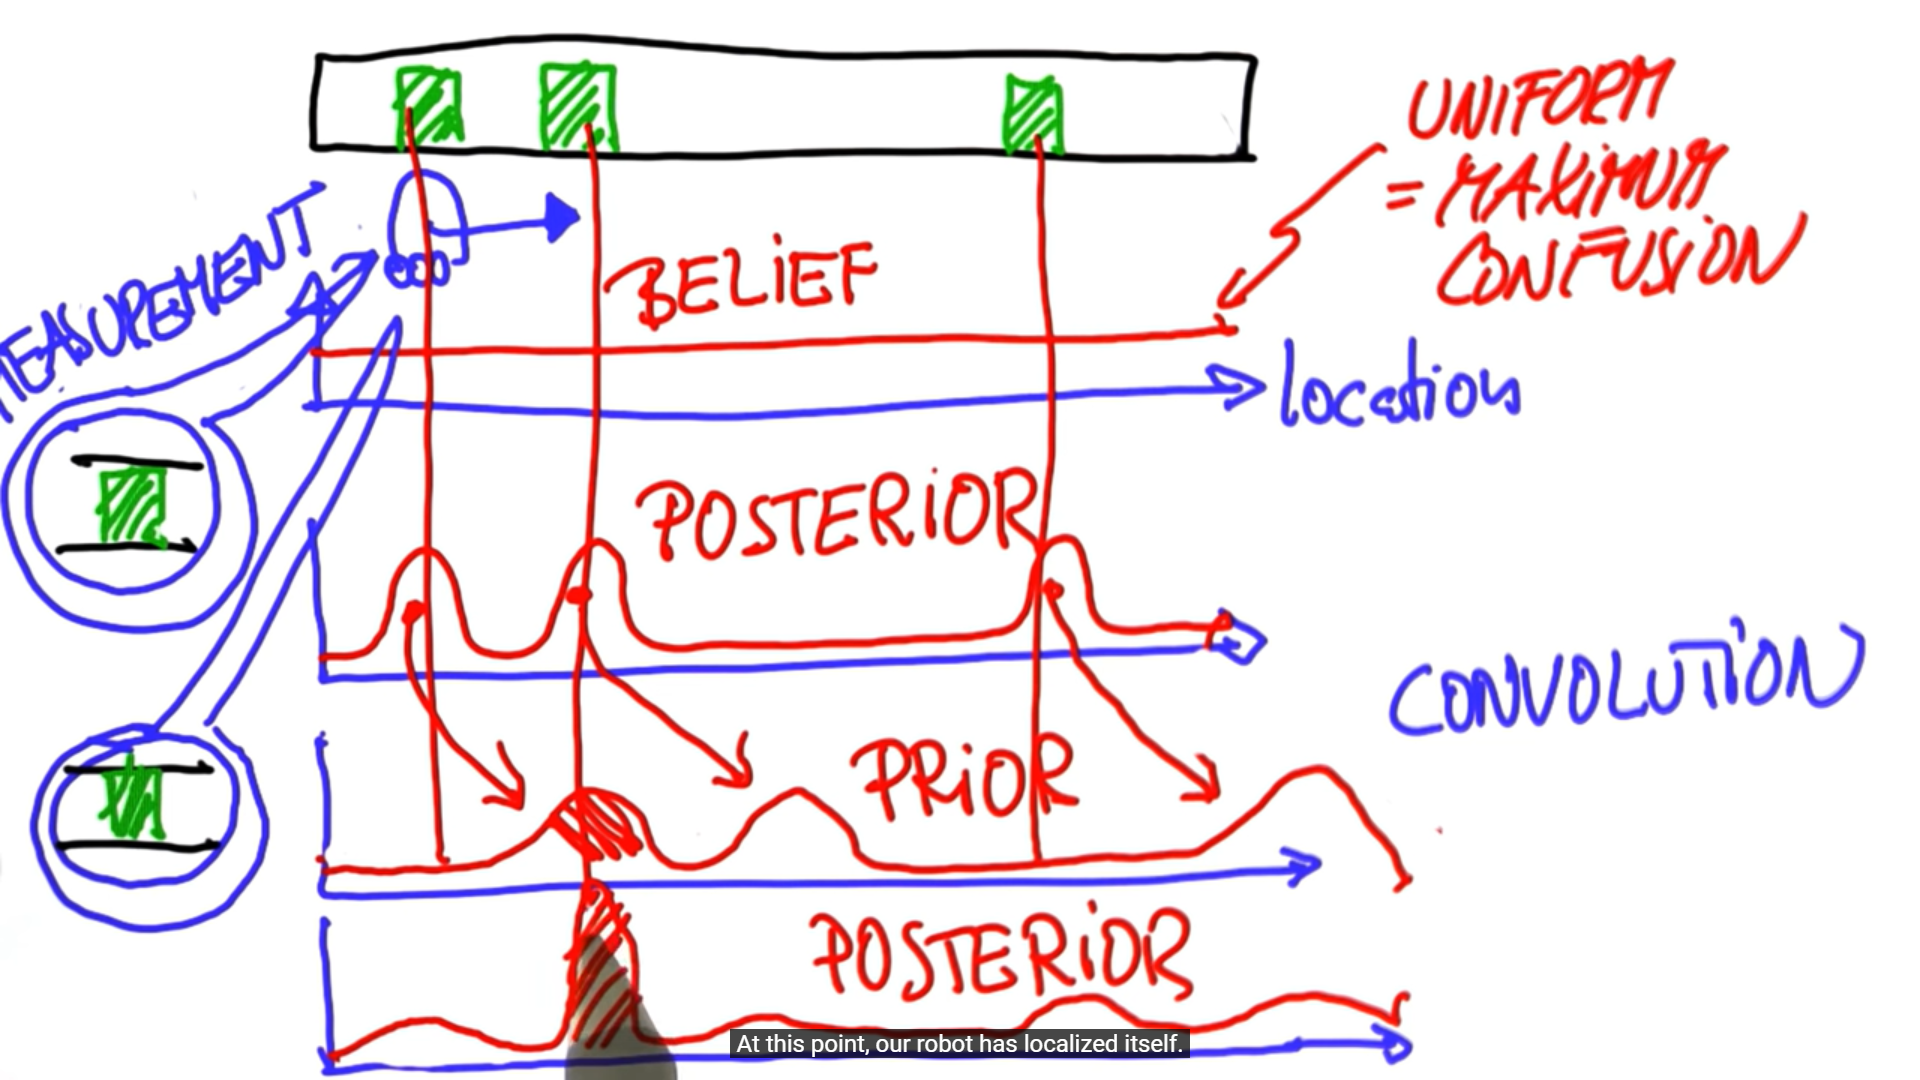 UNIFORM
= MAXIMUM
CONFUSION
MEASUREMENT
BELIEF
location
POSTERIOR
CONVOLUTION
PRIOR
POSTERIOR
At this point, our robot has localized itself.